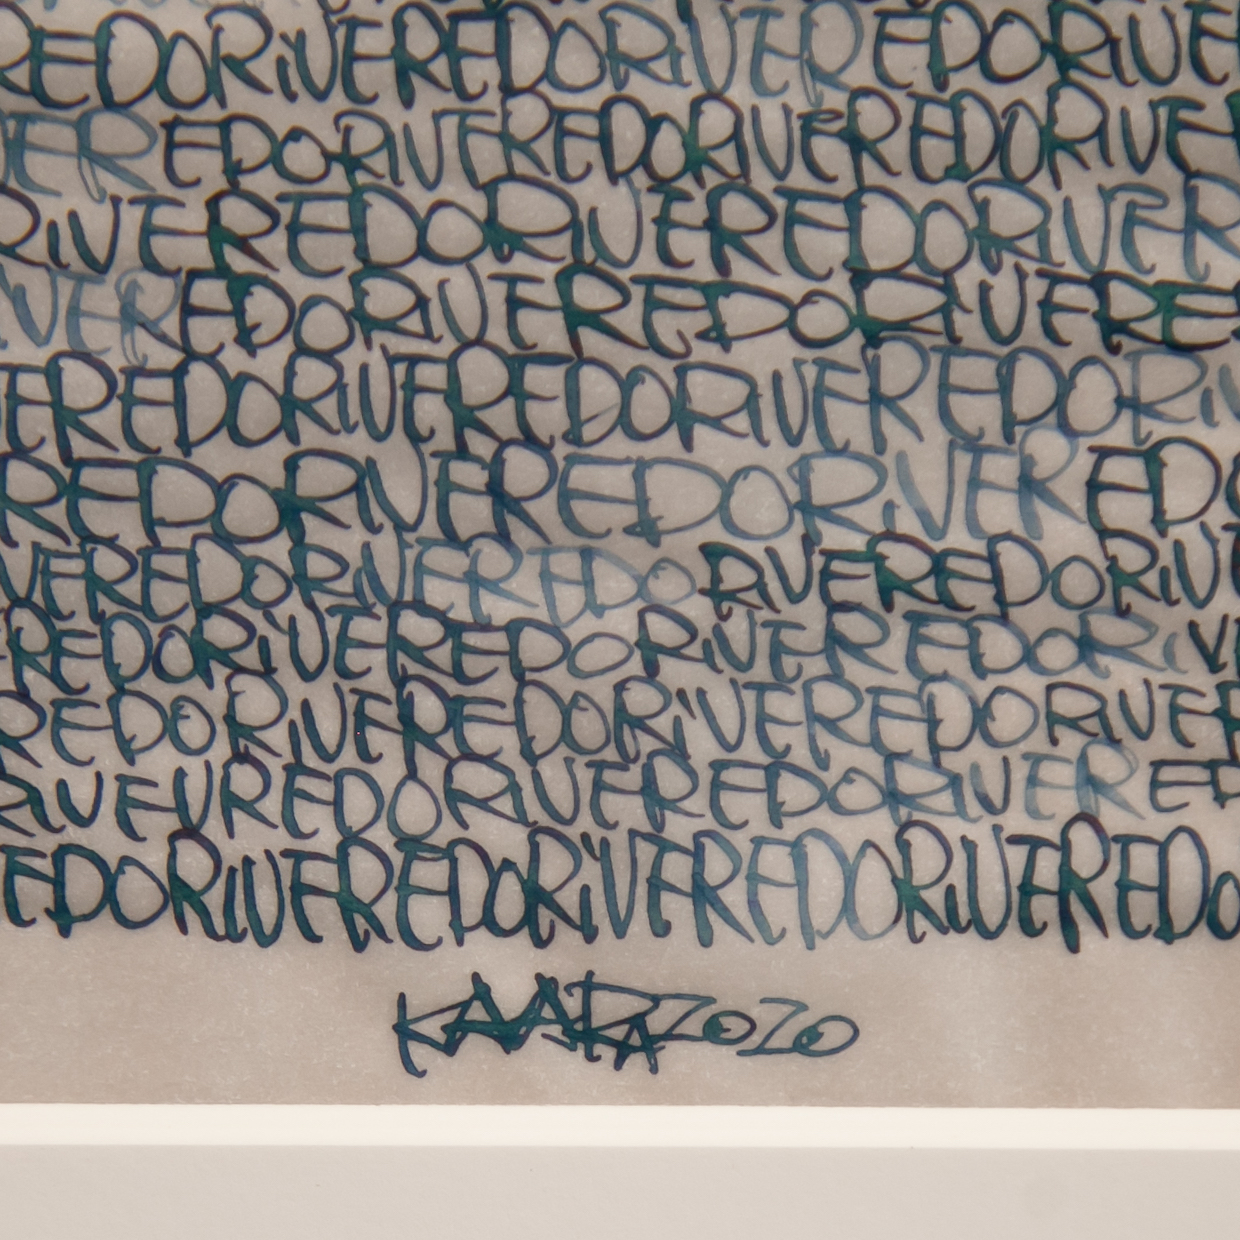 REDORIVEREDORIVEREDORIVE
VEREDORIVEREDORIVEREDORIVE
RIVEREDORIVEREDORIVER
IVEREDORIVEREDORIVERE
EREDORIVEREDORIVEREDORIV
REDORIVEREDORIVEREDO
VEREDORIVEREDORIVEREDORIV
REDORIVEREDORIVEREDORIV
REDORIVEREDORIVEREDORIVER
RIVEUREDORIVEREDORIVERED
EDORIVEREDORIVEREDORIVEREDO
2020